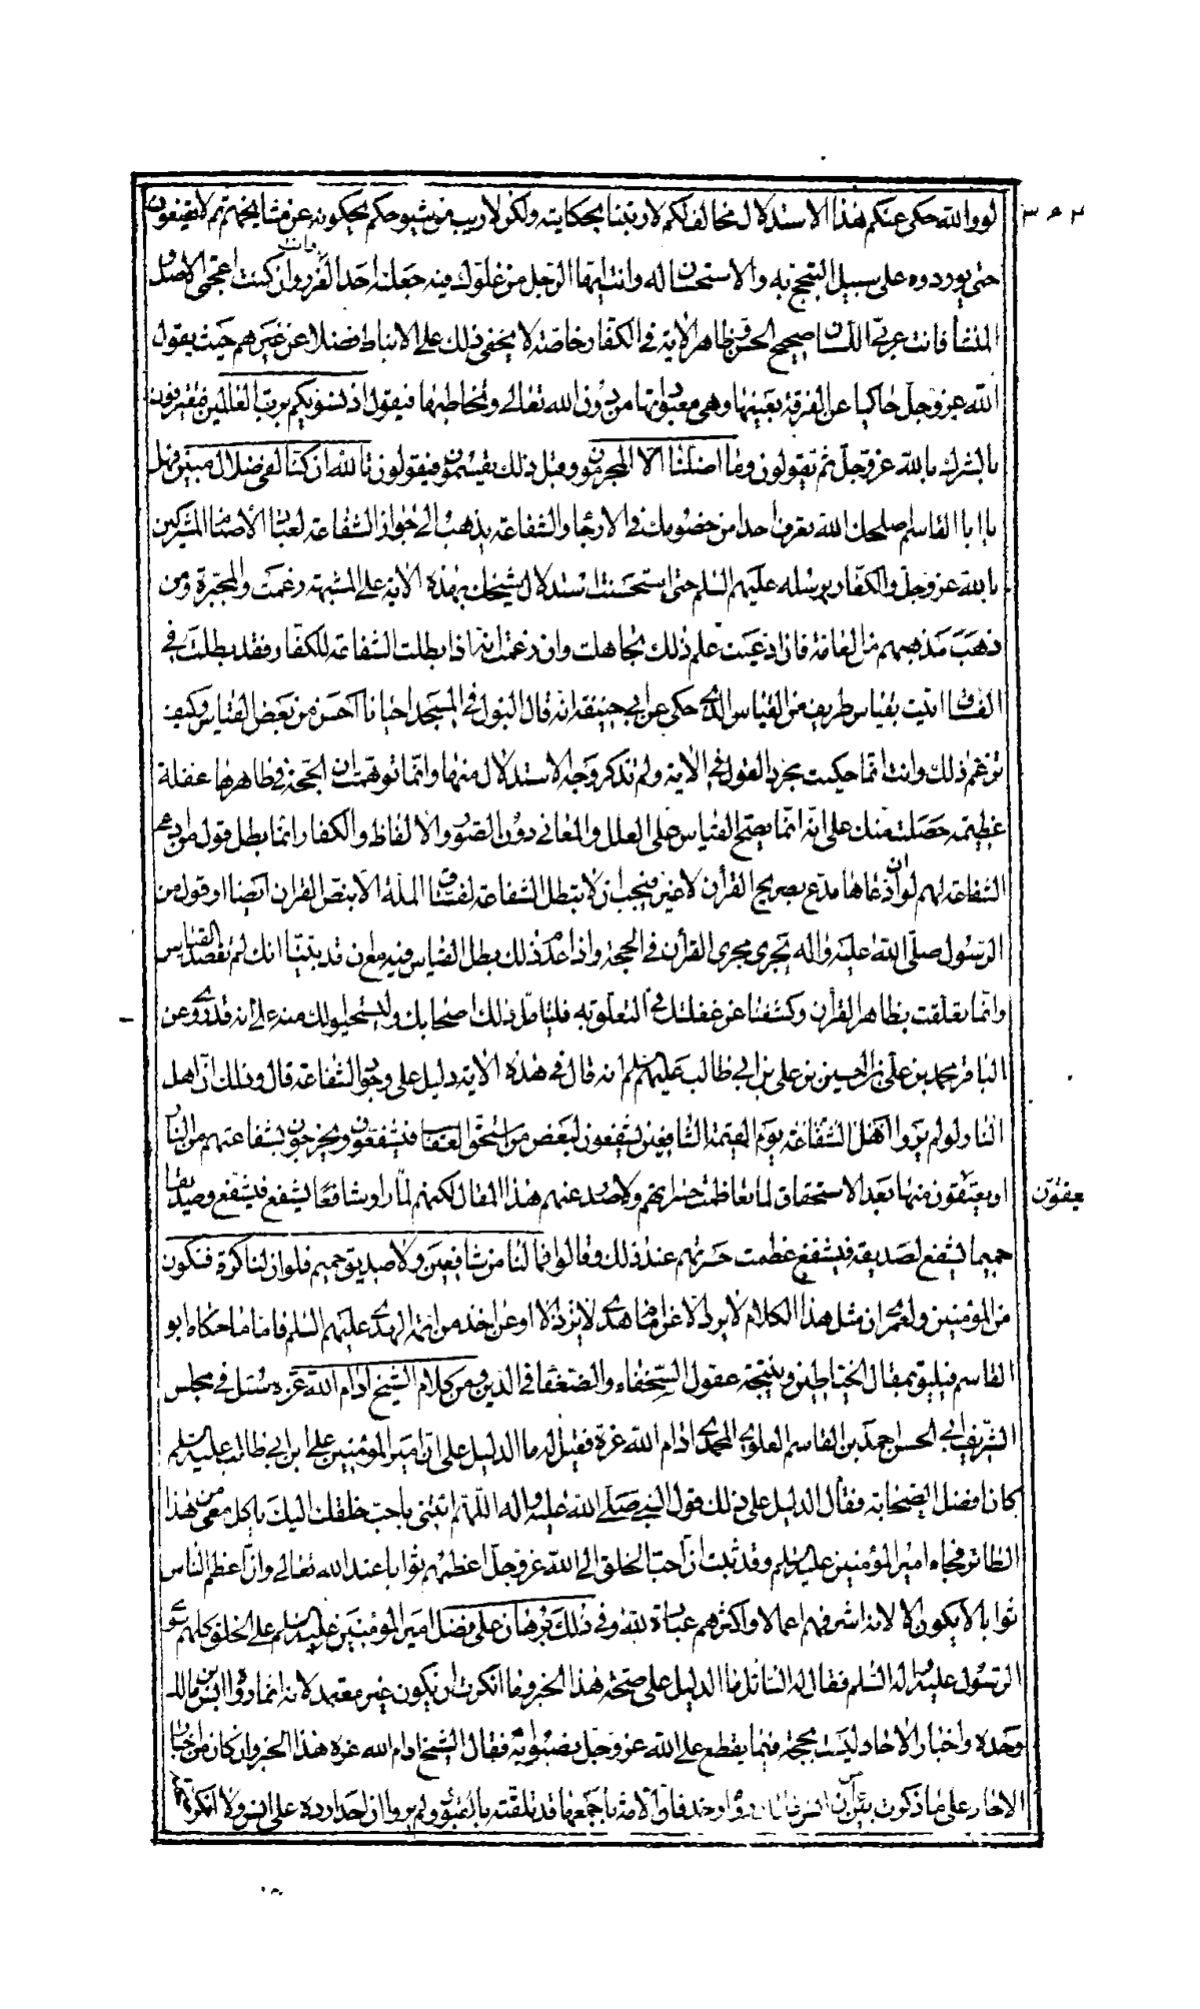 لو والله حكى عنكم هذا الاستدلال مخالف لكم لارتبنا بحكايته ولكن لا ريب وشيوخكم يحكونه عن مشايخهم ثم لا يقنعون
حتى يوردوه على سبيل التبجح به والاستحسان له وانت ايها الرجل من غلوك فيه جعلته احد الغرر وانت وان كنت اعجمي الاصل و
المنشأ فانت عربي اللسان صحيح الحس وظاهر الاية في الكفار خاصة لا يخفى ذلك على الانباط فضلا عن غيرهم حيث يقول
الله عز وجل حاكيا عن الفرقة بعينها وهي معبوداتها من دون الله تعالى وتخاطبها فيقول اذ نسويكم برب العالمين فيعترفون
بالشرك بالله عز وجل ثم يقولون وما اضلنا الا المجرمون وقبل ذلك يقسمون فيقولون تالله ان كنا لفي ضلال مبين فهل
يا ابا القاسم اصلحك الله تعرف احدا من خصومك في الارجاء والشفاعة يذهب الى جواز الشفاعة لعباد الاصنام المشركين
بالله عز وجل والكفار برسله عليهم السلم حتى استحسنت استدلال شيخك بهذه الاية على المشبهة زعمت والمجبرة ومن
ذهب مذهبهم من العامة فان ادعيت علم ذلك تجاهلت وان زعمت انه اذا بطلت الشفاعة للكفار فقد بطلت في
الفساق اتيت بقياس طريف من القياس الذي حكى عن ابي حنيفة انه قال البول في المسجد احيانا احسن من بعض القياس وكيف
تزعم ذلك وانت انما حكيت مجرد القول في الاية ولم تذكر وجه الاستدلال منها وانما توهمت ان الحجة في ظاهرها غفلة
عظيمة حصلت منك على انه انما يصح القياس على العلل والمعاني دون الصور والالفاظ والكفار انما بطل قول من ادعى
الشفاعة لهم لو ان ادعاها مدع بصريح القرآن لا غير فيجب ان لا تبطل الشفاعة لفساق الملة الا بنص القرآن ايضا او قول من
الرسول صلى الله عليه واله يجري مجرى القرآن في الحجة واذا عدم ذلك بطل القياس فيه مع ان قد بينا انك لم تقصد القياس
وانما تعلقت بظاهر القرآن وكشفنا عن غفلتك في التعلق به فليتأمل ذلك اصحابك وليستحيوا لك منه على انه قد روي عن
الباقر محمد بن علي بن الحسين بن علي بن ابي طالب عليهم السلم انه قال في هذه الاية دليل على وجوب الشفاعة قال وذلك ان اهل
النار لو لم يروا اهل الشفاعة يوم القيمة الشافعين يشفعون لبعض من استحق العقاب فيشفعون ويخرجون بشفاعتهم من النار
او يعتقون منها بعد الاستحقاق لما تعاظمت حسراتهم ولا صدر عنهم هذا المقال لكنهم لما راوا شافعا يشفع فيشفع وصديقا
حميما يشفع لصديقه فيشفع عظمت حسرتهم عند ذلك وقالوا فما لنا من شافعين ولا صديق حميم فلو ان لنا كرة فنكون
من المؤمنين ولعمري ان مثل هذا الكلام لا يرد الا عن امام هدى او عن اخذ من ائمة الهدى عليهم السلم فاما ما حكاه ابو
القاسم فيليق بمقال الخياطين ونتيجة عقول السخفاء والضعفاء في الدين ومن كلام الشيخ ادام الله عزه سئل في مجلس
الشريف ابي الحسن احمد بن القاسم العلوي المحمدي ادام الله عزه فقيل له ما الدليل على ان امير المؤمنين علي ابن ابي طالب عليه السلم
كان افضل الصحابة فقال الدليل على ذلك قول النبي صلى الله عليه واله اللهم ائتني باحب خلقك اليك ياكل معي من هذا
الطائر فجاء امير المؤمنين عليه السلم وقد ثبت ان احب الخلق الى الله عز وجل اعظمهم ثوابا عند الله تعالى وان اعظم الناس
ثوابا لا يكون الا لانه اشرفهم اعمالا واكثرهم عبادة لله وفي ذلك برهان على فضل امير المؤمنين عليه السلم على الخلق كلهم سوى
الرسول عليه واله السلم فقال له السائل ما الدليل على صحة هذا الخبر وما انكرت ان يكون غير معتمد لانه انما رواه انس بن مالك
وحده واخبار الاحاد ليست بحجة فيما يقطع على الله عز وجل بصوابه فقال الشيخ ادام الله عزه هذا الخبر وان كان من اخبار
الاحاد على ما ذكرت من ان انس بن مالك رواه وحده فان الامة باجمعها قد تلقته بالقبول ولم يروا ان احدا رده على انس ولا انكر
يعفون